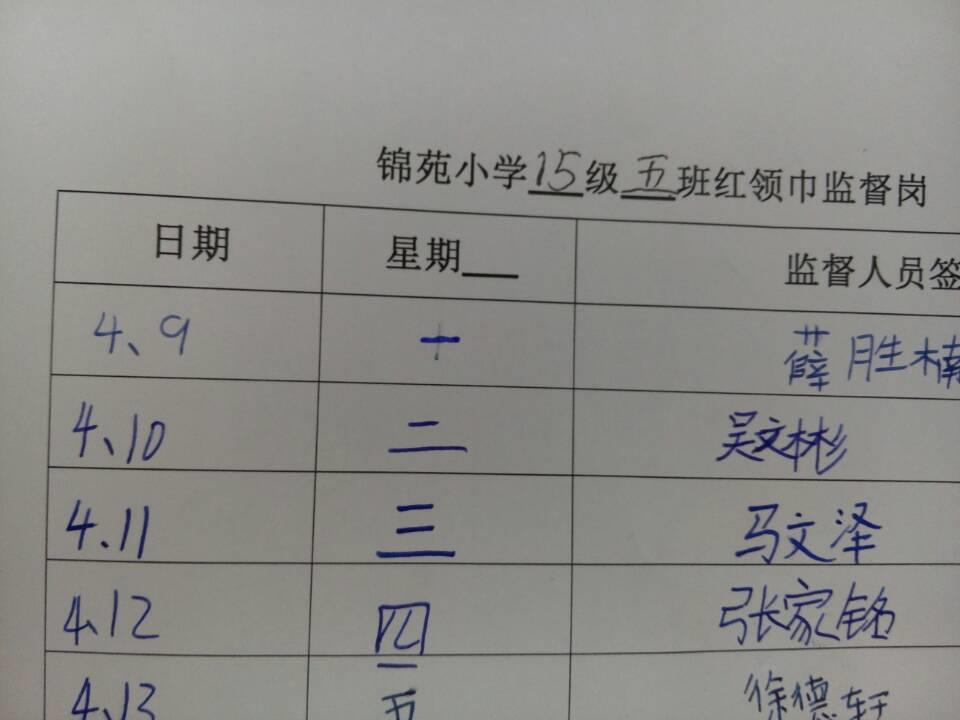 锦苑小学15级五班红领巾监督岗
日期 星期 监督人员签
4、9 一 薛胜楠
4、10 二 吴文彬
4、11 三 马文泽
4、12 四 张家铭
4、13 五 徐德轩